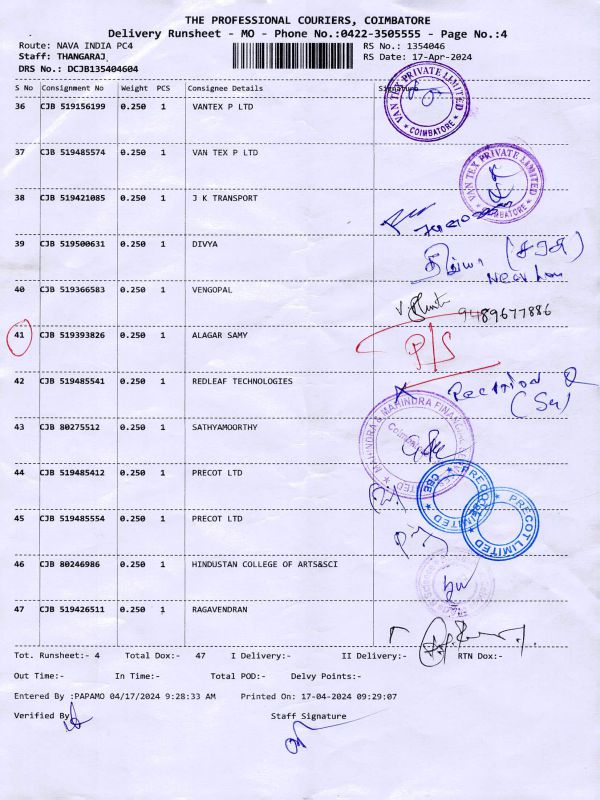 THE PROFESSIONAL COURIERS, COIMBATORE
Delivery Runsheet - MO - Phone No.:0422-3505555 - Page No.:4
Route: NAVA INDIA PC4 RS No.: 1354046
Staff: THANGARAJ RS Date: 17-Apr-2024
DRS No.: DCJB135404604
S No Consignment No Weight PCS Consignee Details Signature
36 CJB 519156199 0.250 1 VANTEX P LTD
VAN TEX PRIVATE LIMITED COIMBATORE
37 CJB 519485574 0.250 1 VAN TEX P LTD
VAN TEX PRIVATE LIMITED COIMBATORE
38 CJB 519421085 0.250 1 J K TRANSPORT
39 CJB 519500631 0.250 1 DIVYA
40 CJB 519366583 0.250 1 VENGOPAL
9489677886
41 CJB 519393826 0.250 1 ALAGAR SAMY
P/S
42 CJB 519485541 0.250 1 REDLEAF TECHNOLOGIES
43 CJB 80275512 0.250 1 SATHYAMOORTHY
MAHINDRA & MAHINDRA FINANCIAL
44 CJB 519485412 0.250 1 PRECOT LTD
PRECOT LIMITED CBE
45 CJB 519485554 0.250 1 PRECOT LTD
PRECOT LIMITED CBE
46 CJB 80246986 0.250 1 HINDUSTAN COLLEGE OF ARTS&SCI
47 CJB 519426511 0.250 1 RAGAVENDRAN
Tot. Runsheet:- 4 Total Dox:- 47 I Delivery:- II Delivery:- RTN Dox:-
Out Time:- In Time:- Total POD:- Delvy Points:-
Entered By :PAPAMO 04/17/2024 9:28:33 AM Printed On: 17-04-2024 09:29:07
Verified By Staff Signature